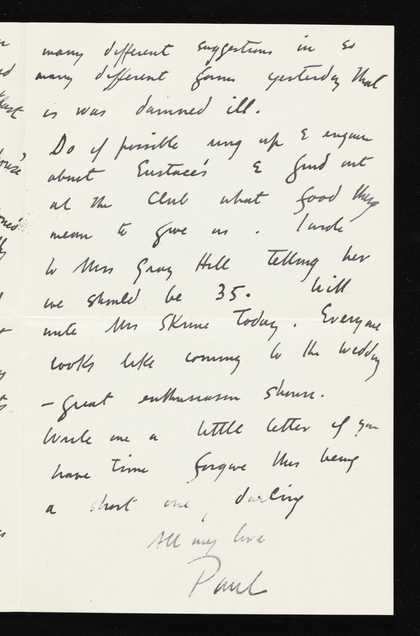 many different suggestions in so
many different forms yesterday that
is was damned ill.
Do if possible ring up & enquire
about Eustace's & find out
at the Club what good things
mean to give us. I wrote
to Mrs Gray Hill telling her
we should be 35. Will
write Mrs Skrine today. Everyone
looks like coming to the wedding
– great enthusiasm shown.
Write me a little letter if you
have time forgive this being
a short one, darling
All my love
Paul